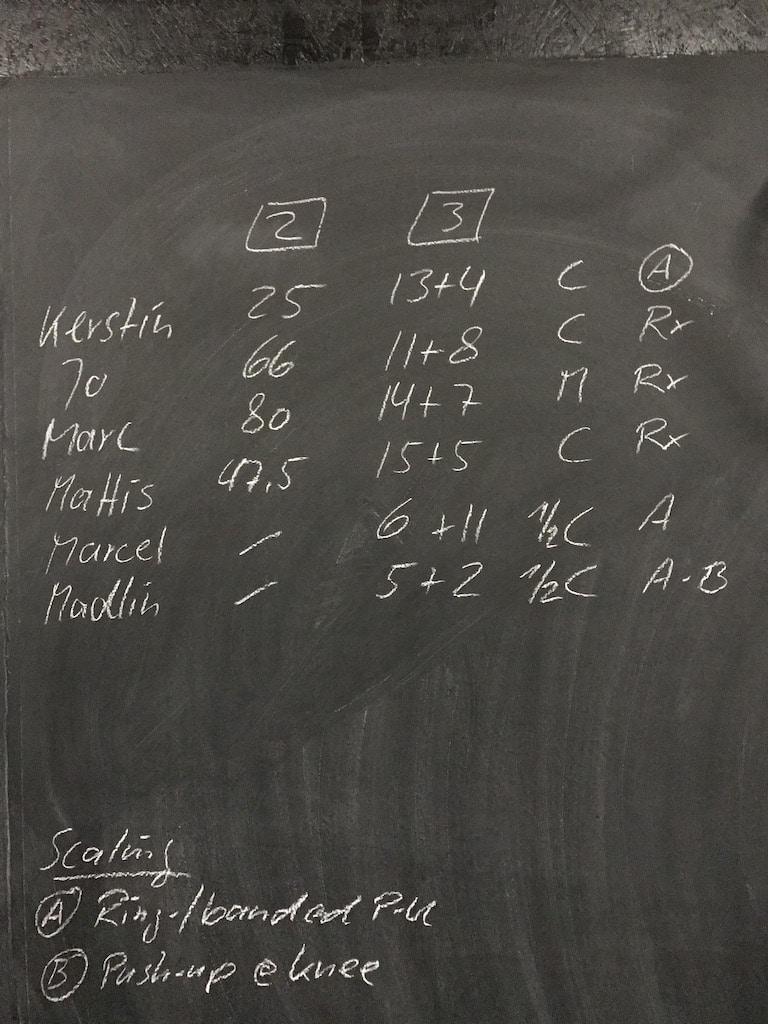 2 3
Kerstin 25 13+4 C A
Jo 66 11+8 C Rx
Marc 80 14+7 M Rx
Mattis 47,5 15+5 C Rx
Marcel - 6+11 1/2C A
Madlin - 5+2 1/2C A-B
Scaling
A Ring-/banded P-U
B Push-up @ knee